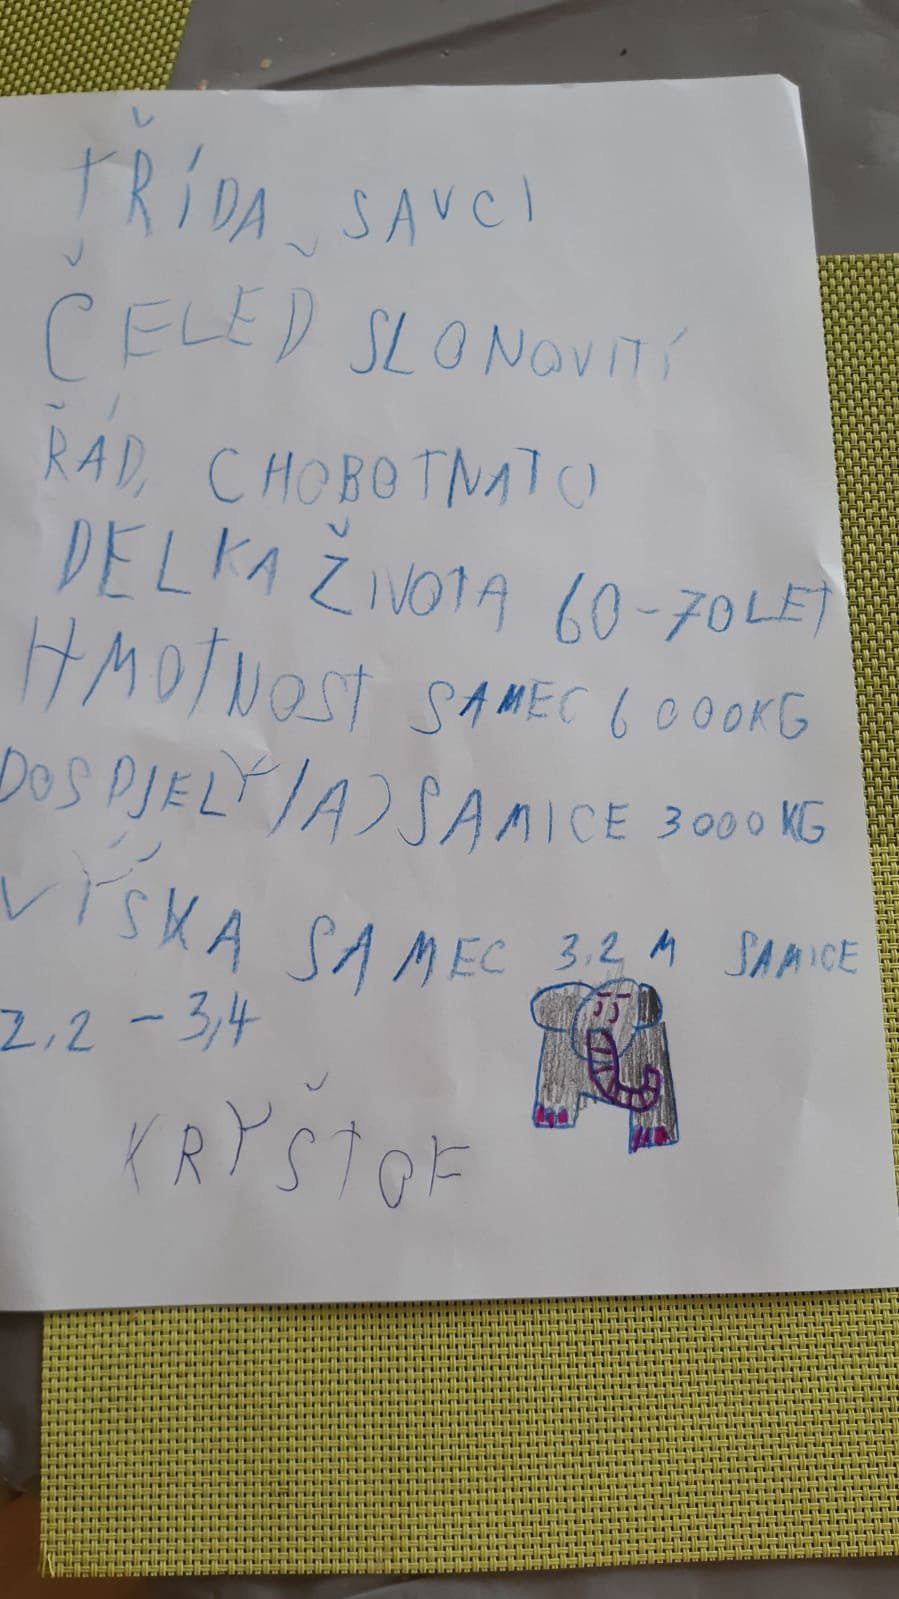 TŘÍDA SAVCI
ČELEĎ SLONOVITÍ
ŘÁD, CHOBOTNATU
DELKA ŽIVOTA 60-70 LET
HMOTNOST SAMEC 6000KG
DOSPJELÝ/A) SAMICE 3000KG
VÝŠKA SAMEC 3.2 M SAMICE
2,2 - 3,4
KRYŠTOF